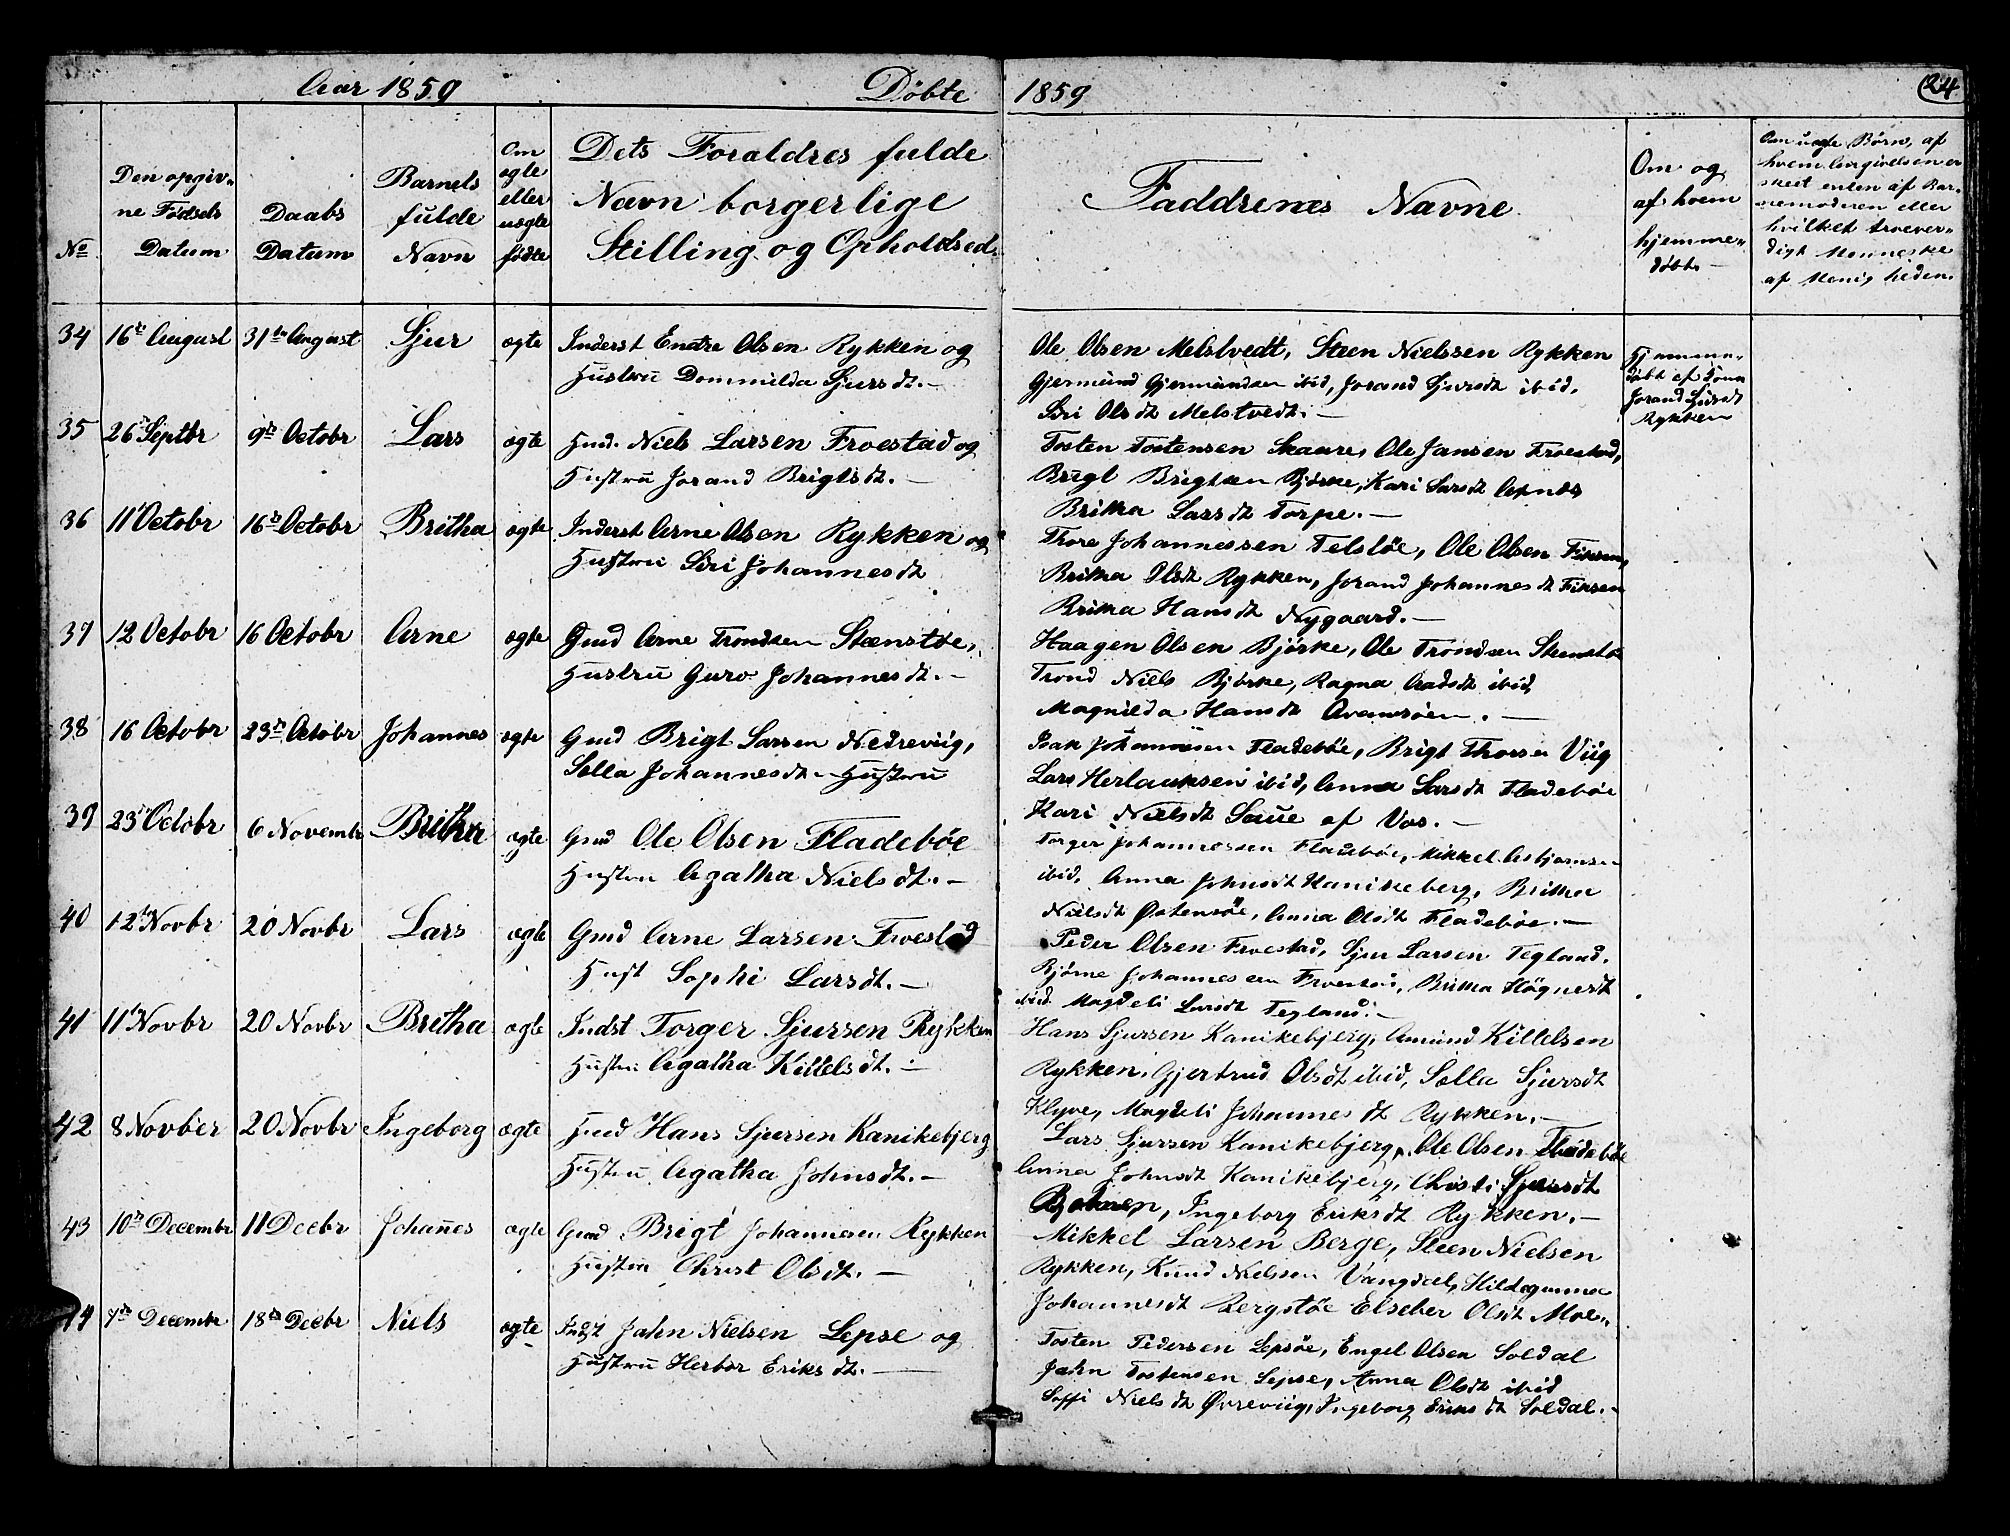 Aar 1859 Döbte 1859 24
No
Den opgiv-
ne Fødsels
Datum
Daabs
Datum
Barnets
fulde
Navn
Om
ægte
eller
uægte
fødte
Dets Foraldres fulde
Navn borgerlige
Stilling og Opholdsted
Faddrenes Navne
Om og
af hvem
hjemme-
døbt
Om uægte Børn, af
hvem Angivelsen er
skeet enten af Bar-
nemoderen eller
hvilket troever-
digt Menneske
af Menigheden.
34 16de August 31te August Sjur ægte Inderst Endre Olsen Rykken og
Hustru Dommilda Sjursdt.
Ole Olsen Melstvedt, Steen Nielssen Rykken
Gjermund Gjermundsen ibid, Jorand Sjursdt ibid.
Siri Olsdt Melstvedt.
Hjemme-
døbt af
Jorand Sjursdt
Rykken
35 26de Septbr 9de Octobr Lars ægte Gmd. Niels Larsen Froestad og
Hustru Jorand Brigtsdt.
Tosten Tostensen Skaare, Ole Jansen Froestad,
Brigt Brigtsen Bjørke, Kari Larsdt Axnes
Britha Larsdt Torpe.
36 11te Octobr 16de Octobr Britha ægte Inderst Arne Olsen Rykken og
Hustru Siri Johannesdt
Thore Johannessen Telsløe, Ole Olsen Fiksen,
Britha Olsdt Rykken, Jorand Johannesdt Fiksen
Britha Hansdt Nygaard.
37 12 Octobr 16 Octobr Arne ægte Gmd Arne Trondsen Stænstøe,
Hustru Guro Johannesdt.
Haagen Olsen Bjørke, Ole Trondsen Steenstøe
Trond Niels Bjørke, Ragna Aadsdt ibid
Magnilda Hansdt
38 16 Octobr 23de Octobr Johannes ægte Gmd Brigt Larsen Nedreviig,
Sella Johannesdt Hustru
Isak Johannesen Fladebøe, Brigt Thorsen Viig
Lars Herlauksen ibid, Anna Larsdt Fladebøe
Kari Nielsdt Saue af Vos.
39 23de Octobr 6 Novembr Britha ægte Gmd Ole Olsen Fladebøe
Hustru Agatha Nielsdt.
Torger Johannessen Fladebøe, Mikkel Asbjørnsen
ibid, Anna Johnsdt Kanikeberg, Britha
Nielsdt Østensøe, Anna Olsdt Fladebøe.
40 12te Novbr 20 Novbr Lars ægte Gmd Arne Larsen Froestad
Hust Sophi Larsdt.
Peder Olsen Froestad, Sjur Larsen Tegland.
Bjørne Johannessen Froestad, Britha Høgnesdt
ibid Magdeli Larsdt Tegland.
41 11te Novbr 20 Novbr Britha ægte Indst Torger Sjurssen Rykken
Hustru Agatha Kittelsdt.
Hans Sjursen Kanikebjerg, Amund Kittelsen
Rykken, Gjertrud Olsdt ibid, Sella Sjursdt
Klyve, Magdeli Johannesdt Rykken.
42 8 Novber 20 Novbr Ingeborg ægte Gmd Hans Sjursen Kanikebjerg
Hustru Agatha Johnsdt.
Lars Sjursen Kanikebjerg, Ole Olsen Fladebøe
Anna Johnsdt Kanikebjerg, Christi Sjursdt
Ingeborg Eriksdt Rykken.
43 10de Decembr 11 Decbr Johañes ægte Gmd Brigt Johannesen Rykken
Hustru Christ Olsdt.
Mikkel Larsen Berge, Steen Nielsen
Rykken, Knud Nielssen Vangdal, Hildegunna
Johannesdt Bergstøe Elseber Olsdt Moe.
44 7de Decembr 18de Decbr Niels ægte Indst Jahn Nielsen Lepse og
Hustru Herbor Eriksdt.
Tosten Pedersen Lepsøe, Engel Olsen Soldal
Jahn Tostensen Lepse, Anna Olsdt ibid
Soffi Nielsdt Øvreviig, Ingeborg Eriksdt Soldal.